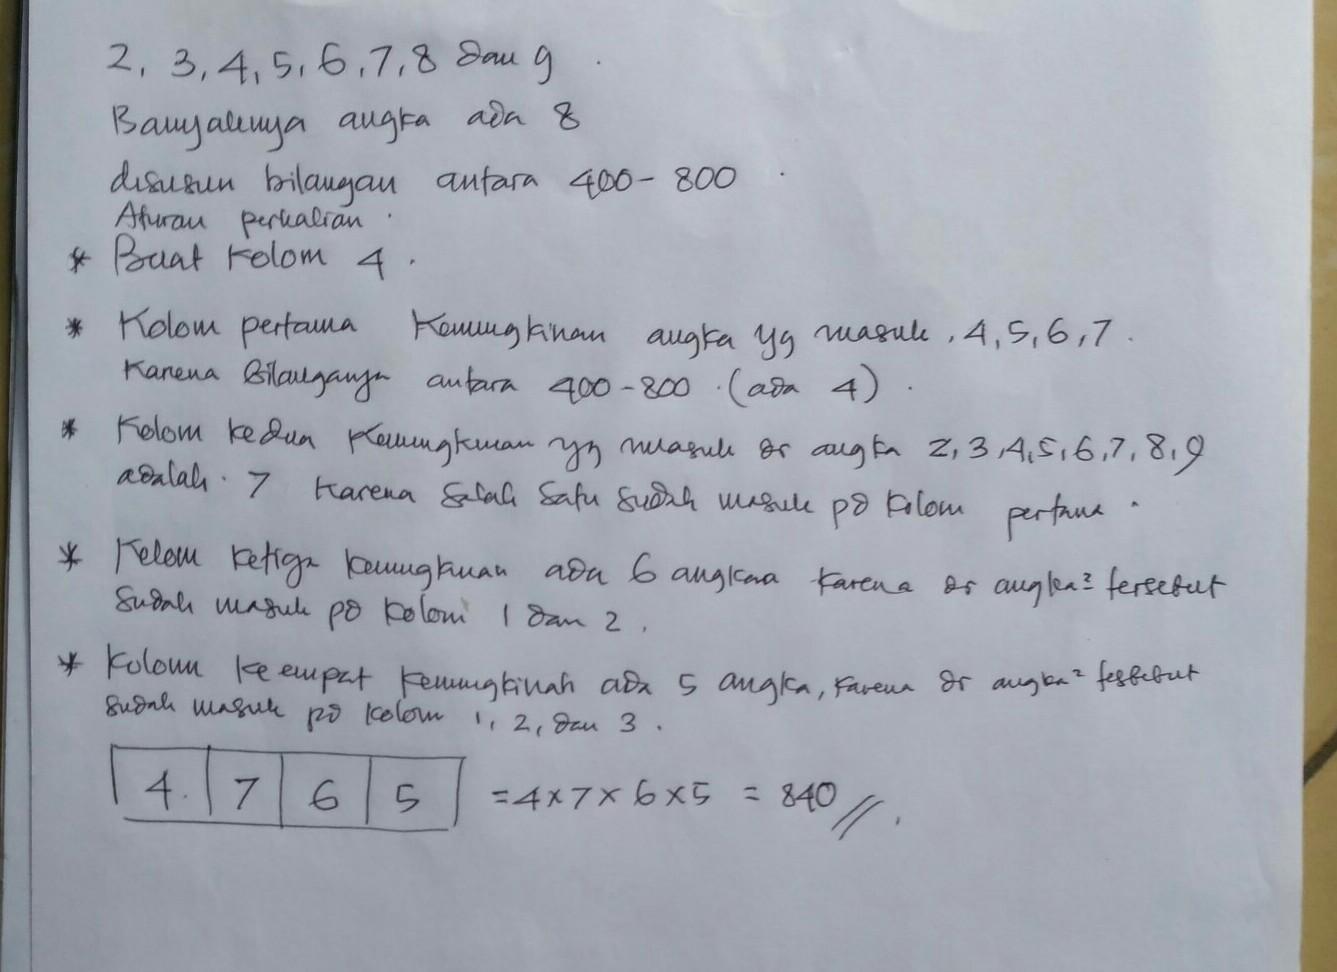 2, 3, 4, 5, 6, 7, 8 dan 9.
Banyaknya angka ada 8
disusun bilangan antara 400 - 800.
Aturan perkalian.
* Buat Kolom 4.
* Kolom pertama kemungkinan angka yg masuk, 4, 5, 6, 7.
Karena Bilangannya antara 400 - 800. (ada 4).
* Kolom kedua kemungkinan yg masuk dr angka 2, 3, 4, 5, 6, 7, 8, 9
adalah. 7 karena salah satu sudah masuk pd kolom pertama.
* Kolom ketiga kemungkinan ada 6 angkaa karena dr angka² tersebut
sudah masuk pd kolom 1 dan 2.
* Kolom keempat kemungkinan ada 5 angka, karena dr angka² tersebut
sudah masuk pd kolom 1, 2, dan 3.
4. 7 6 5 = 4 x 7 x 6 x 5 = 840 //.